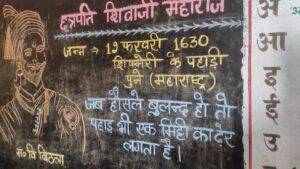 छत्रपति शिवाजी महाराज
जन्म → 19 फरवरी 1630
शिवनेरी के पहाड़ी
पुणे (महाराष्ट्र)
जब हौसले बुलन्द हो तो
पहाड़ भी एक मिट्टी का ढेर
लगता है।
अ
आ
इ
ई
उ